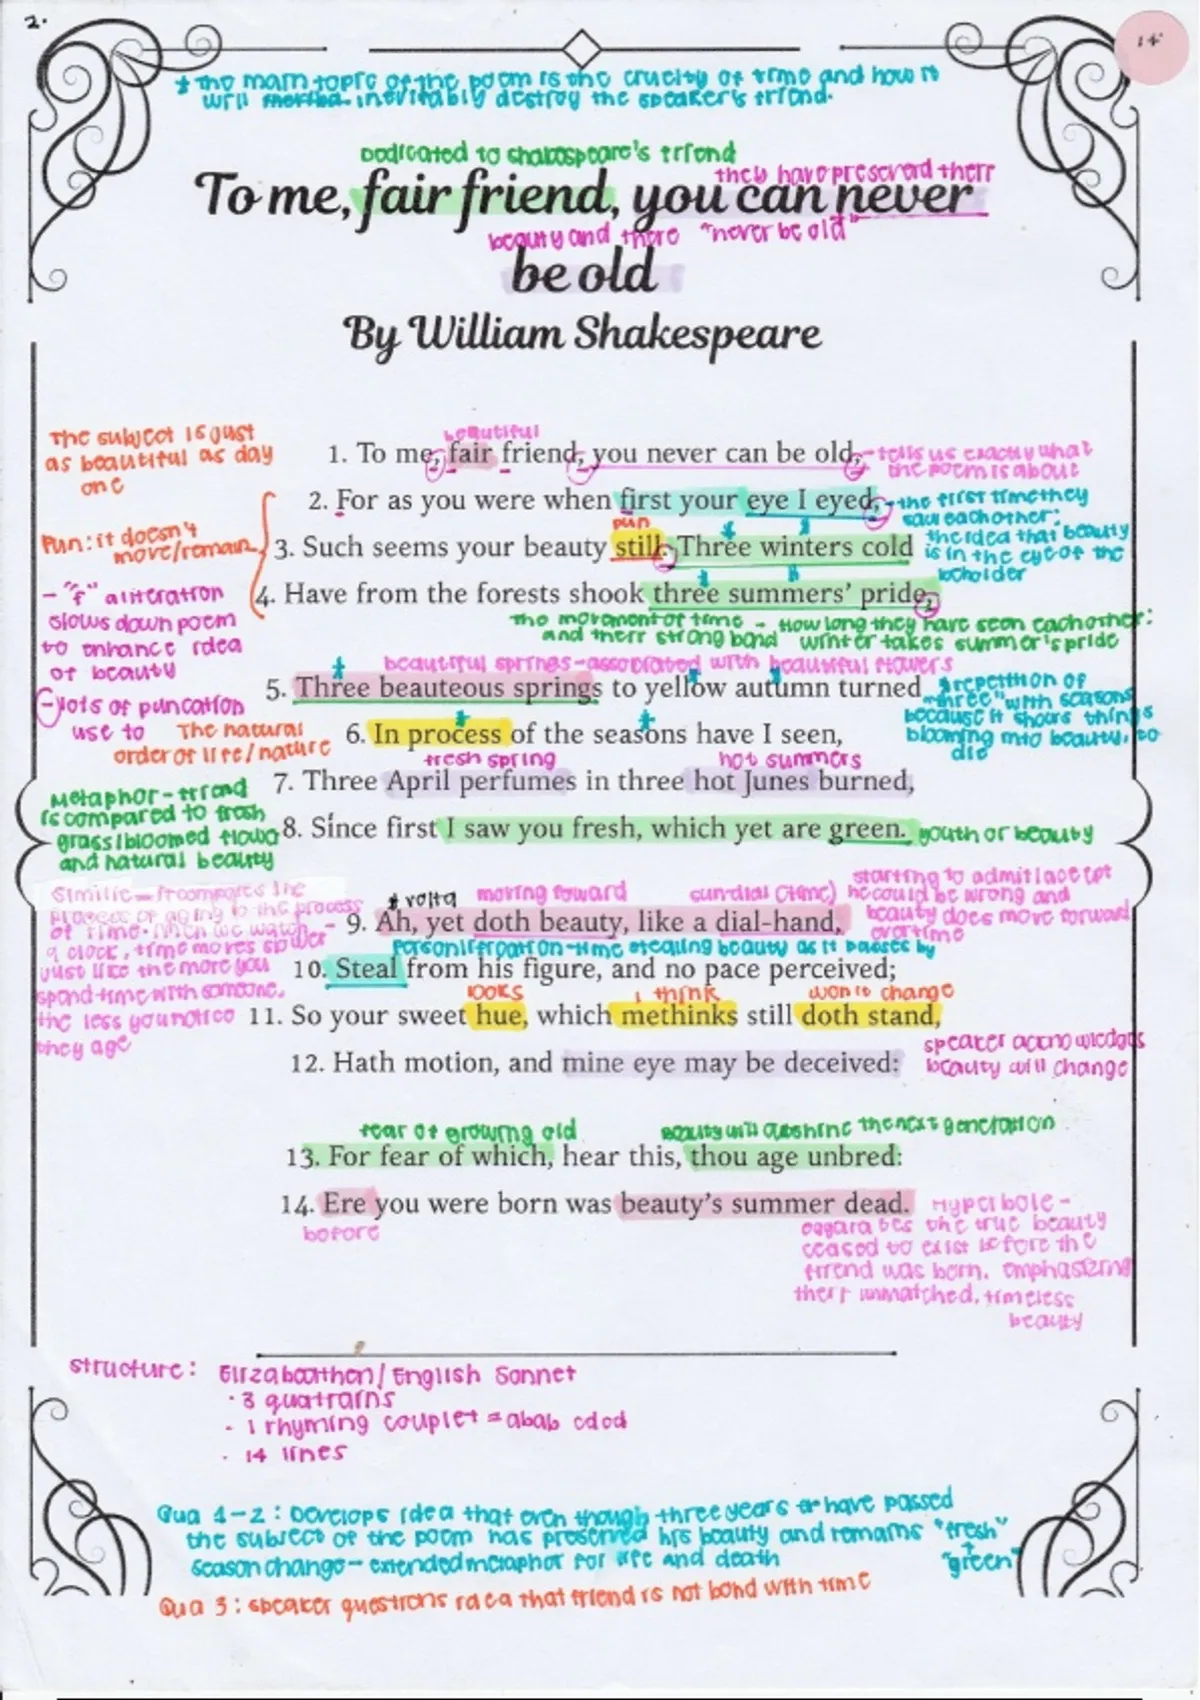 2.
14
* the main topic of the poem is the cruelty of time and how it
will inevitably destroy the speaker's friend.
Dedicated to shakespeare's friend
they have preserved their
To me, fair friend, you can never
beauty and there "never be old"
be old
By William Shakespeare
The subject is just
as beautiful as day
one
beautiful
1. To me, fair friend, you never can be old,
-tells us exactly what
the poem is about
2. For as you were when first your eye I eyed,
-the first time they
saw eachother:
the idea that beauty
is in the eye of the
beholder
Pun: it doesn't
move/remain
pun
3. Such seems your beauty still. Three winters cold
4. Have from the forests shook three summers' pride,
- "f" aliteration
slows down poem
to enhance idea
of beauty
The movement of time - How long they have seen eachother:
and their strong bond winter takes summer's pride
beautiful springs-associated with beautiful flowers
5. Three beauteous springs to yellow autumn turned
* repetition of
"three" with seasons
because it shows things
blooming into beauty, to
die
-lots of puncation
use to
The natural
order of life/nature
6. In process of the seasons have I seen,
fresh spring hot summers
7. Three April perfumes in three hot Junes burned,
Metaphor-friend
is compared to fresh
grass/bloomed
and natural beauty
8. Since first I saw you fresh, which yet are green.
youth or beauty
* volta moving foward sundial (time)
starting to admit/accept
he could be wrong and
beauty does move forward
overtime
9. Ah, yet doth beauty, like a dial-hand,
Similie-It compares the
process of aging to the process
of time. When we watch
a clock, time moves slower
just like the more you
spend time with someone,
the less you notice
they age
Personification-time stealing beauty as it passes by
10. Steal from his figure, and no pace perceived;
looks i think won't change
11. So your sweet hue, which methinks still doth stand,
12. Hath motion, and mine eye may be deceived:
speaker acknowledges
beauty will change
fear of growing old
beauty will the next generation
13. For fear of which, hear this, thou age unbred:
14. Ere you were born was beauty's summer dead.
before
Hyperbole-
the true beauty
ceased to exist before the
friend was born. emphasizing
their unmatched, timeless
beauty
Structure: Elizabeathen/English Sonnet
· 3 quatrains
- 1 rhyming couplet = abab cdcd
· 14 lines
Qua 1-2: Develops idea that even though three years have passed
the subject of the poem has preserved his beauty and remains "fresh"
+
season change-extended metaphor for life and death "green"
Qua 3: speaker questions idea that friend is not bond with time